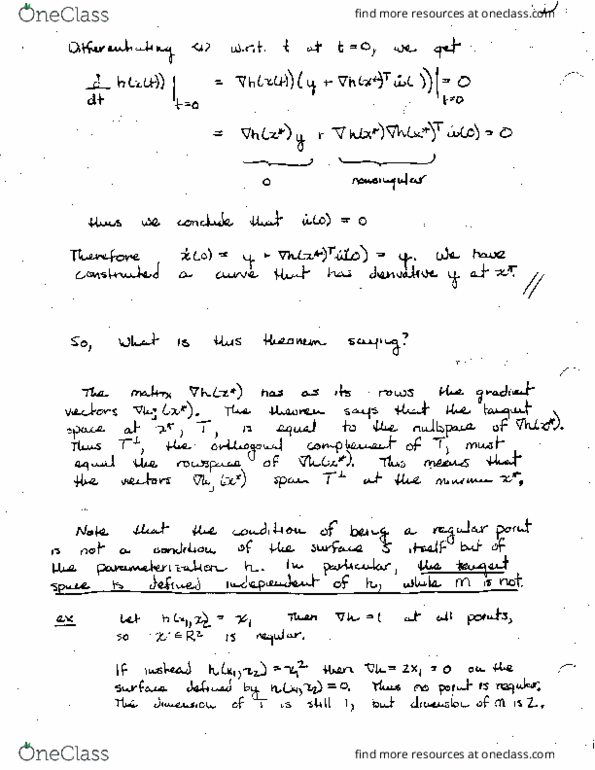 OneClass
find more resources at oneclass.com
Differentiating <1> w.r.t. t at t=0, we get
d/dt h(x(t))|t=0 = ∇h(x(t))(y + ∇h(x*)ᵀ u̇( ))|t=0 = 0
= ∇h(x*)y + ∇h(x*)∇h(x*)ᵀ u̇(0) = 0
0 nonsingular
thus we conclude that u̇(0) = 0
Therefore, ẋ(0) = y + ∇h(x*)ᵀu̇(0) = y. We have
constructed a curve that has derivative y at x*. //
So, what is this theorem saying?
The matrix ∇h(x*) has as its rows the gradient
vectors ∇hⱼ(x*). The theorem says that the tangent
space at x*, T, is equal to the nullspace of ∇h(x*).
Thus T⊥, the orthogonal complement of T, must
equal the rowspace of ∇h(x*). This means that
the vectors ∇hⱼ(x*) span T⊥ at the minimum x*.
Note that the condition of being a regular point
is not a condition of the surface S itself but of
the parameterization h. In particular, the tangent
space is defined independent of h, while M is not.
ex Let h(x₁,x₂) = x₁ Then ∇h = 1 at all points,
so x ∈ R² is regular.
If instead h(x₁,x₂) = x₁² then ∇h = 2x₁ = 0 on the
surface defined by h(x₁,x₂)=0. Thus no point is regular.
The dimension of T is still 1, but dimension of M is 2.
OneClass
find more resources at oneclass.com